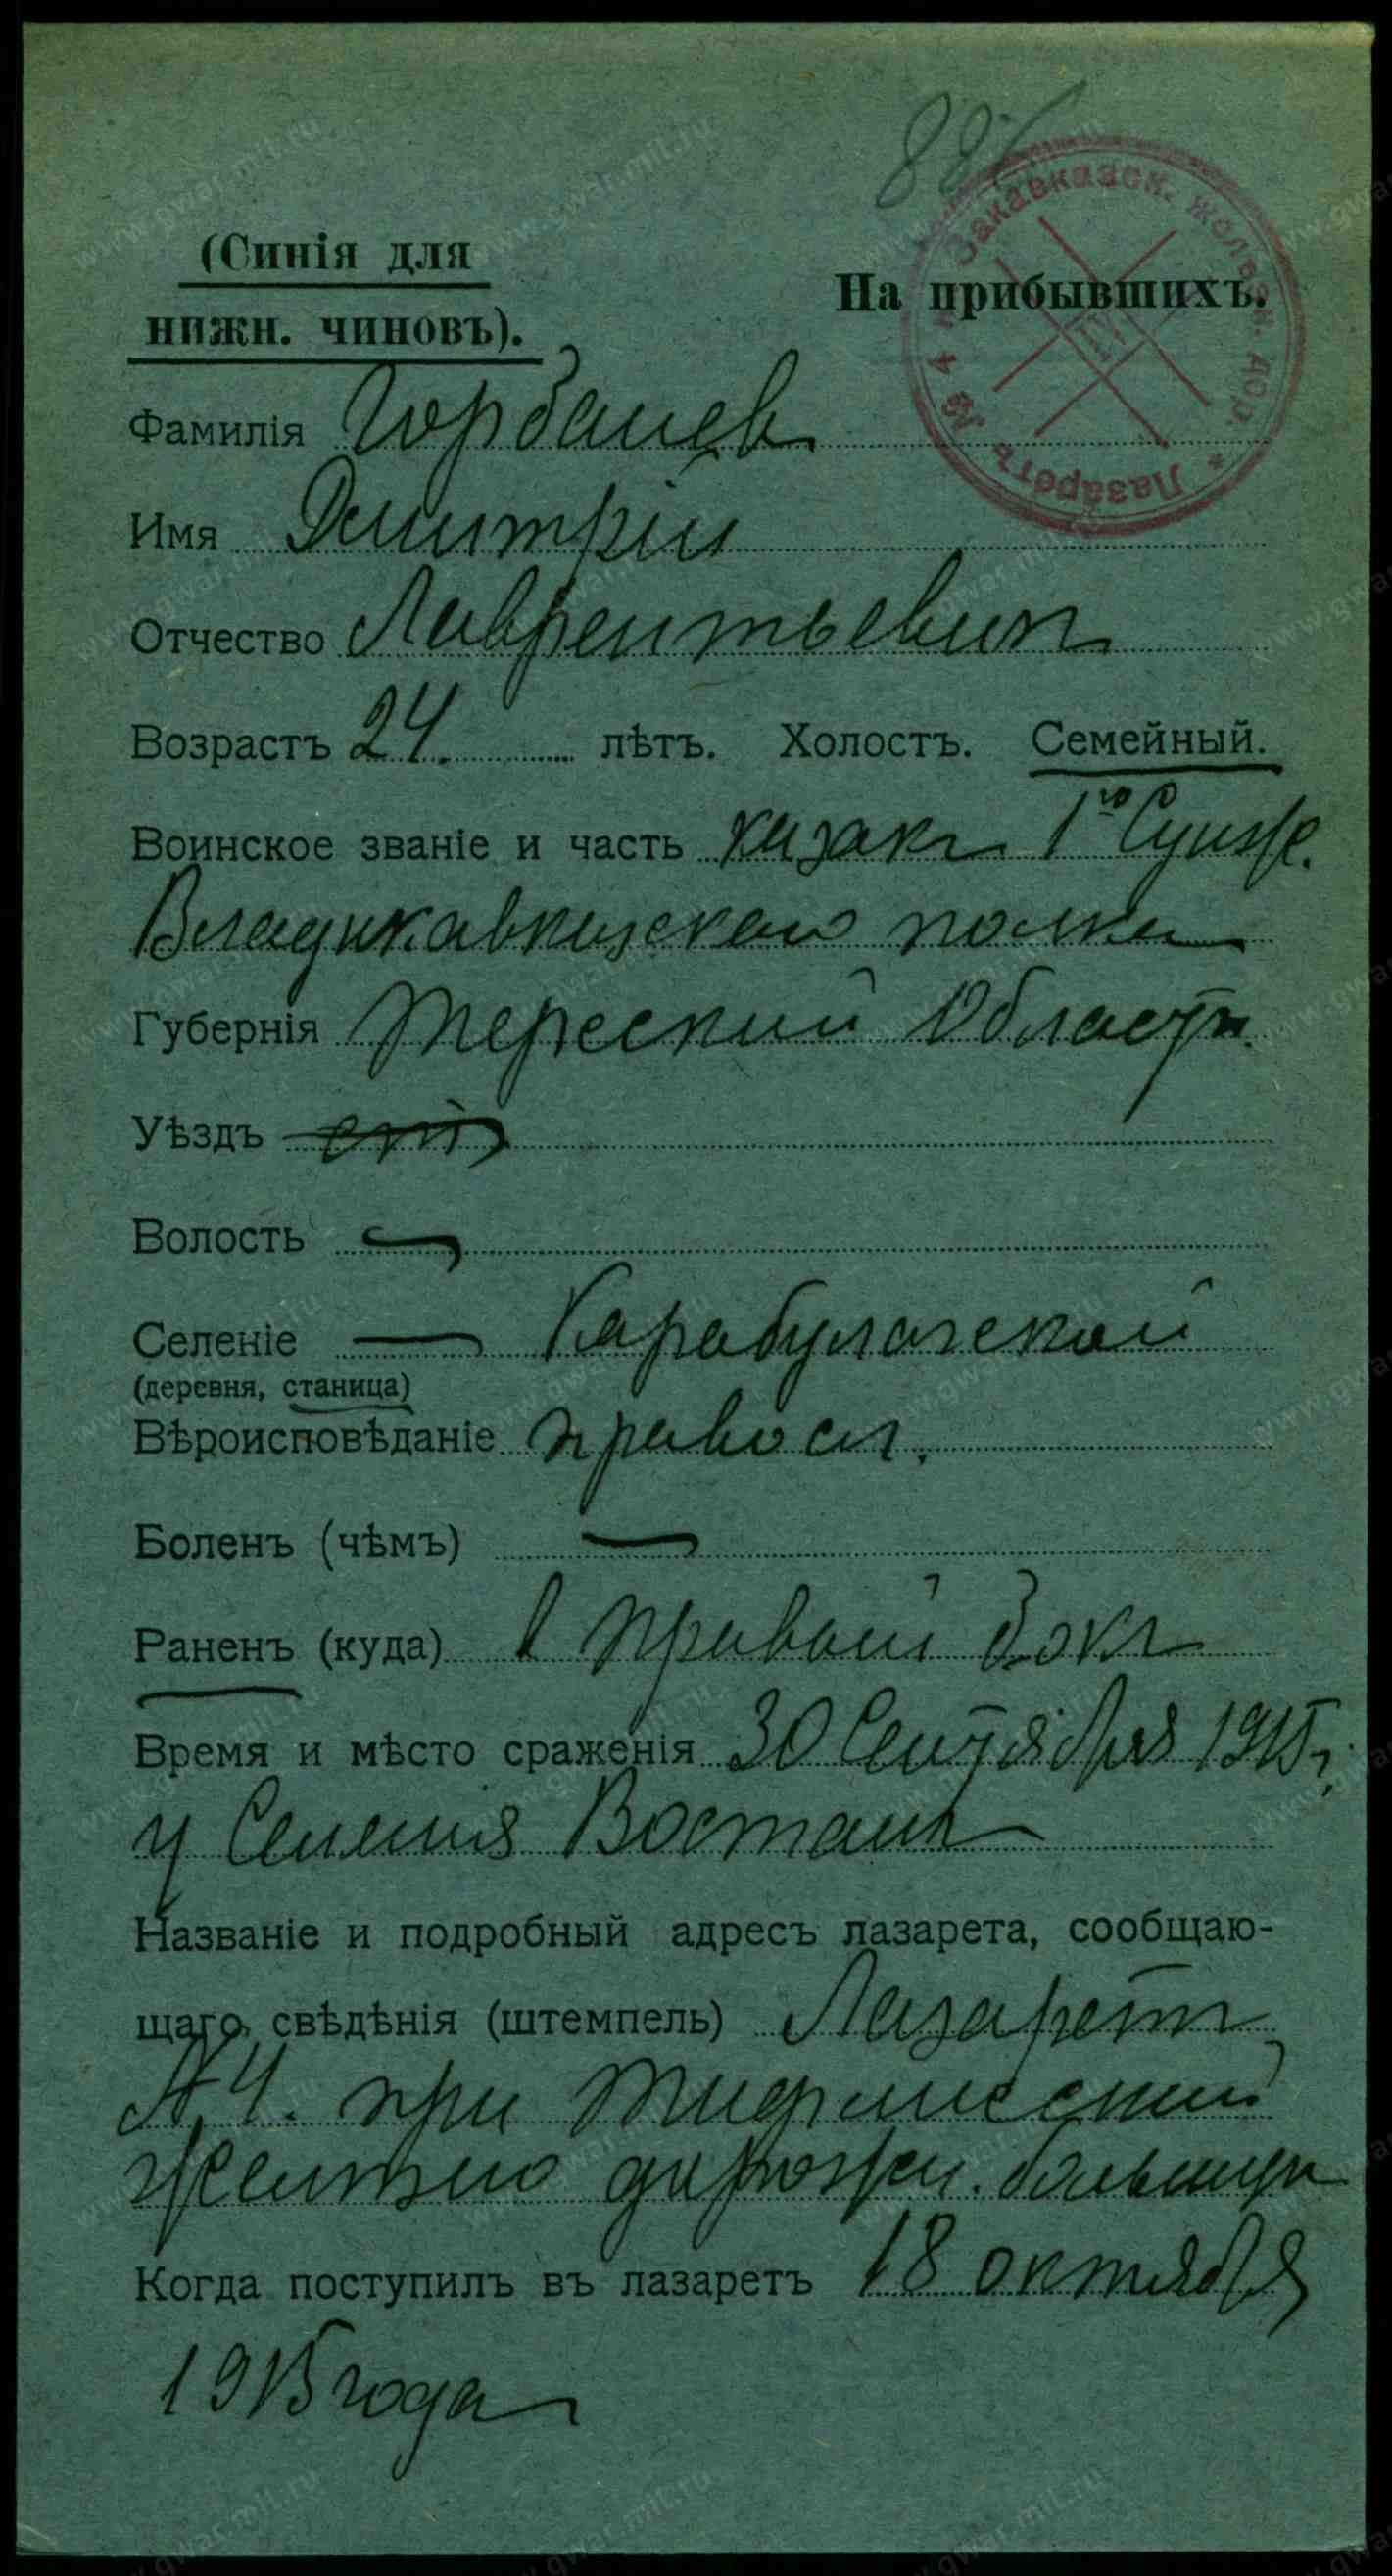 886
Закавказск. желѣзн. дор.
* Лазаретъ № 4 *
IV
(Синія для
нижн. чиновъ).
На прибывшихъ.
Фамилія Горбанев
Имя Дмитрій
Отчество Лаврентьевич
Возрастъ 24 лѣтъ. Холостъ. Семейный.
Воинское званіе и часть казакъ 1го Сунж.
Владикавказскаго полка
Губернія Терской Области
Уѣздъ
Волость —
Селеніе — Карабулагской
(деревня, станица)
Вѣроисповѣданіе правосл.
Боленъ (чѣмъ) —
Раненъ (куда) в правый бокъ
Время и мѣсто сраженія 30 Сентября 1915 г.
у Селенія Востанъ
Названіе и подробный адресъ лазарета, сообщаю-
щаго свѣдѣнія (штемпель) Лазаретъ
№ 4. при Тифлисской
желѣзно дорожн. больницѣ
Когда поступилъ въ лазаретъ 18 октября
1915 года
www.gwar.mil.ru